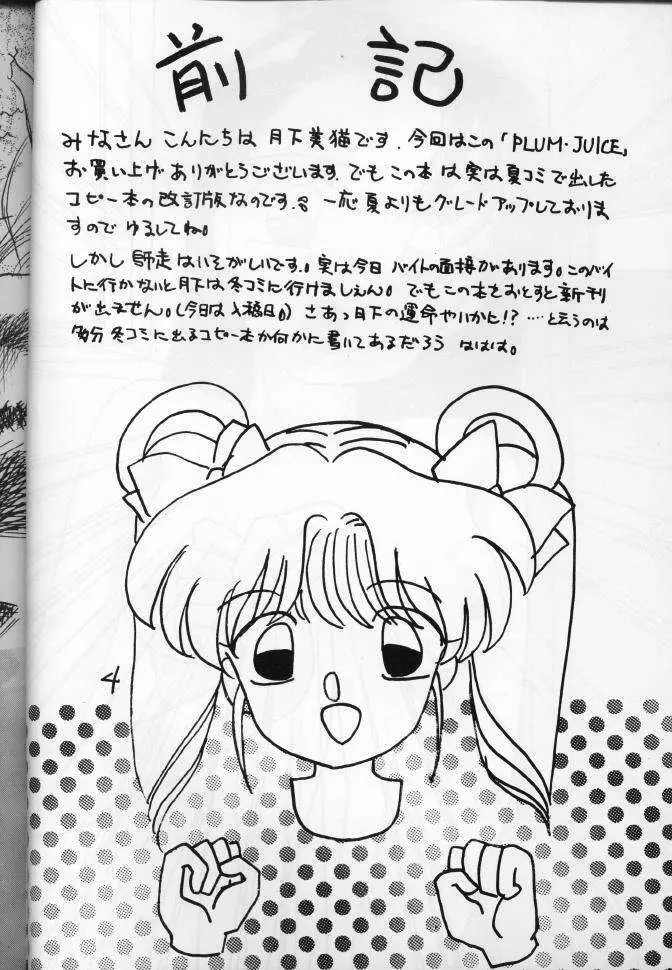 前記
みなさん こんにちは 月下美猫です。今回はこの「PLUM・JUICE」
お買い上げありがとうございます。でもこの本は実は夏コミで出した
コピー本の改訂版なのです。 一応夏よりもグレードアップしておりま
すので ゆるしてね。
しかし 師走はいそがしいです。実は今日 バイトの面接があります。このバイ
トに行かないと月下は冬コミに行けましぇん。でもこの本をおとすと新刊
が出ません。(今日は入稿日。) さあっ月下の運命やいかに!? ‥‥と云うのは
多分 冬コミに出るコピー本か何かに書いてあるだろう ははは。
4